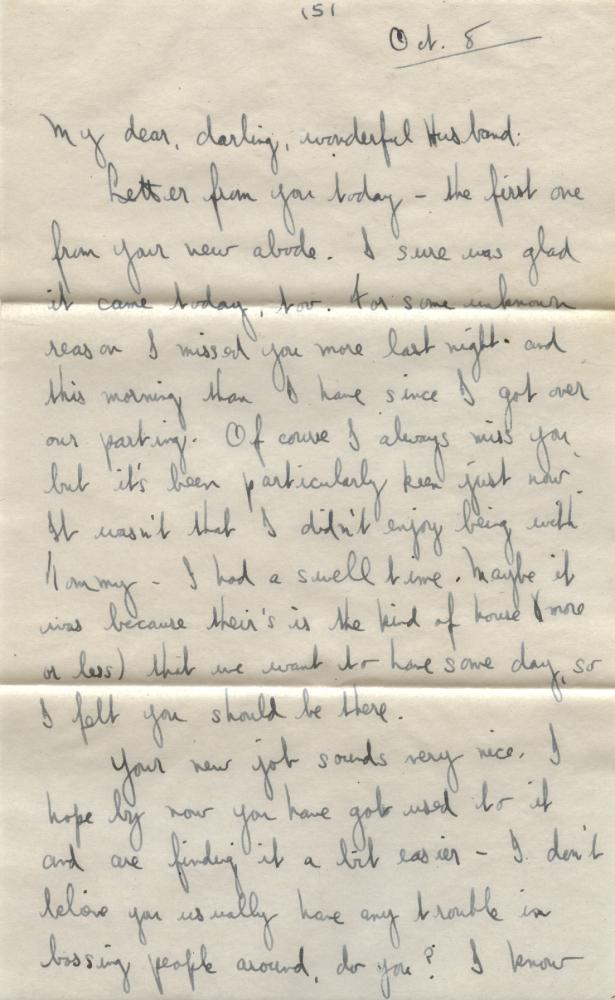 (5)
Oct. 8
My dear, darling, wonderful Husband:
Letter from you today - the first one
from your new abode. I sure was glad
it came today, too. For some unknown
reason I missed you more last night and
this morning than I have since I got over
our parting. Of course I always miss you
but it's been particularly keen just now.
It wasn't that I didn't enjoy being with
Tommy - I had a swell time. Maybe it
was because their's is the kind of house (more
or less) that we want to have some day, so
I felt you should be there.
Your new job sounds very nice. I
hope by now you have got used to it
and are finding it a bit easier - I don't
believe you usually have any trouble in
bossing people around, do you? I know